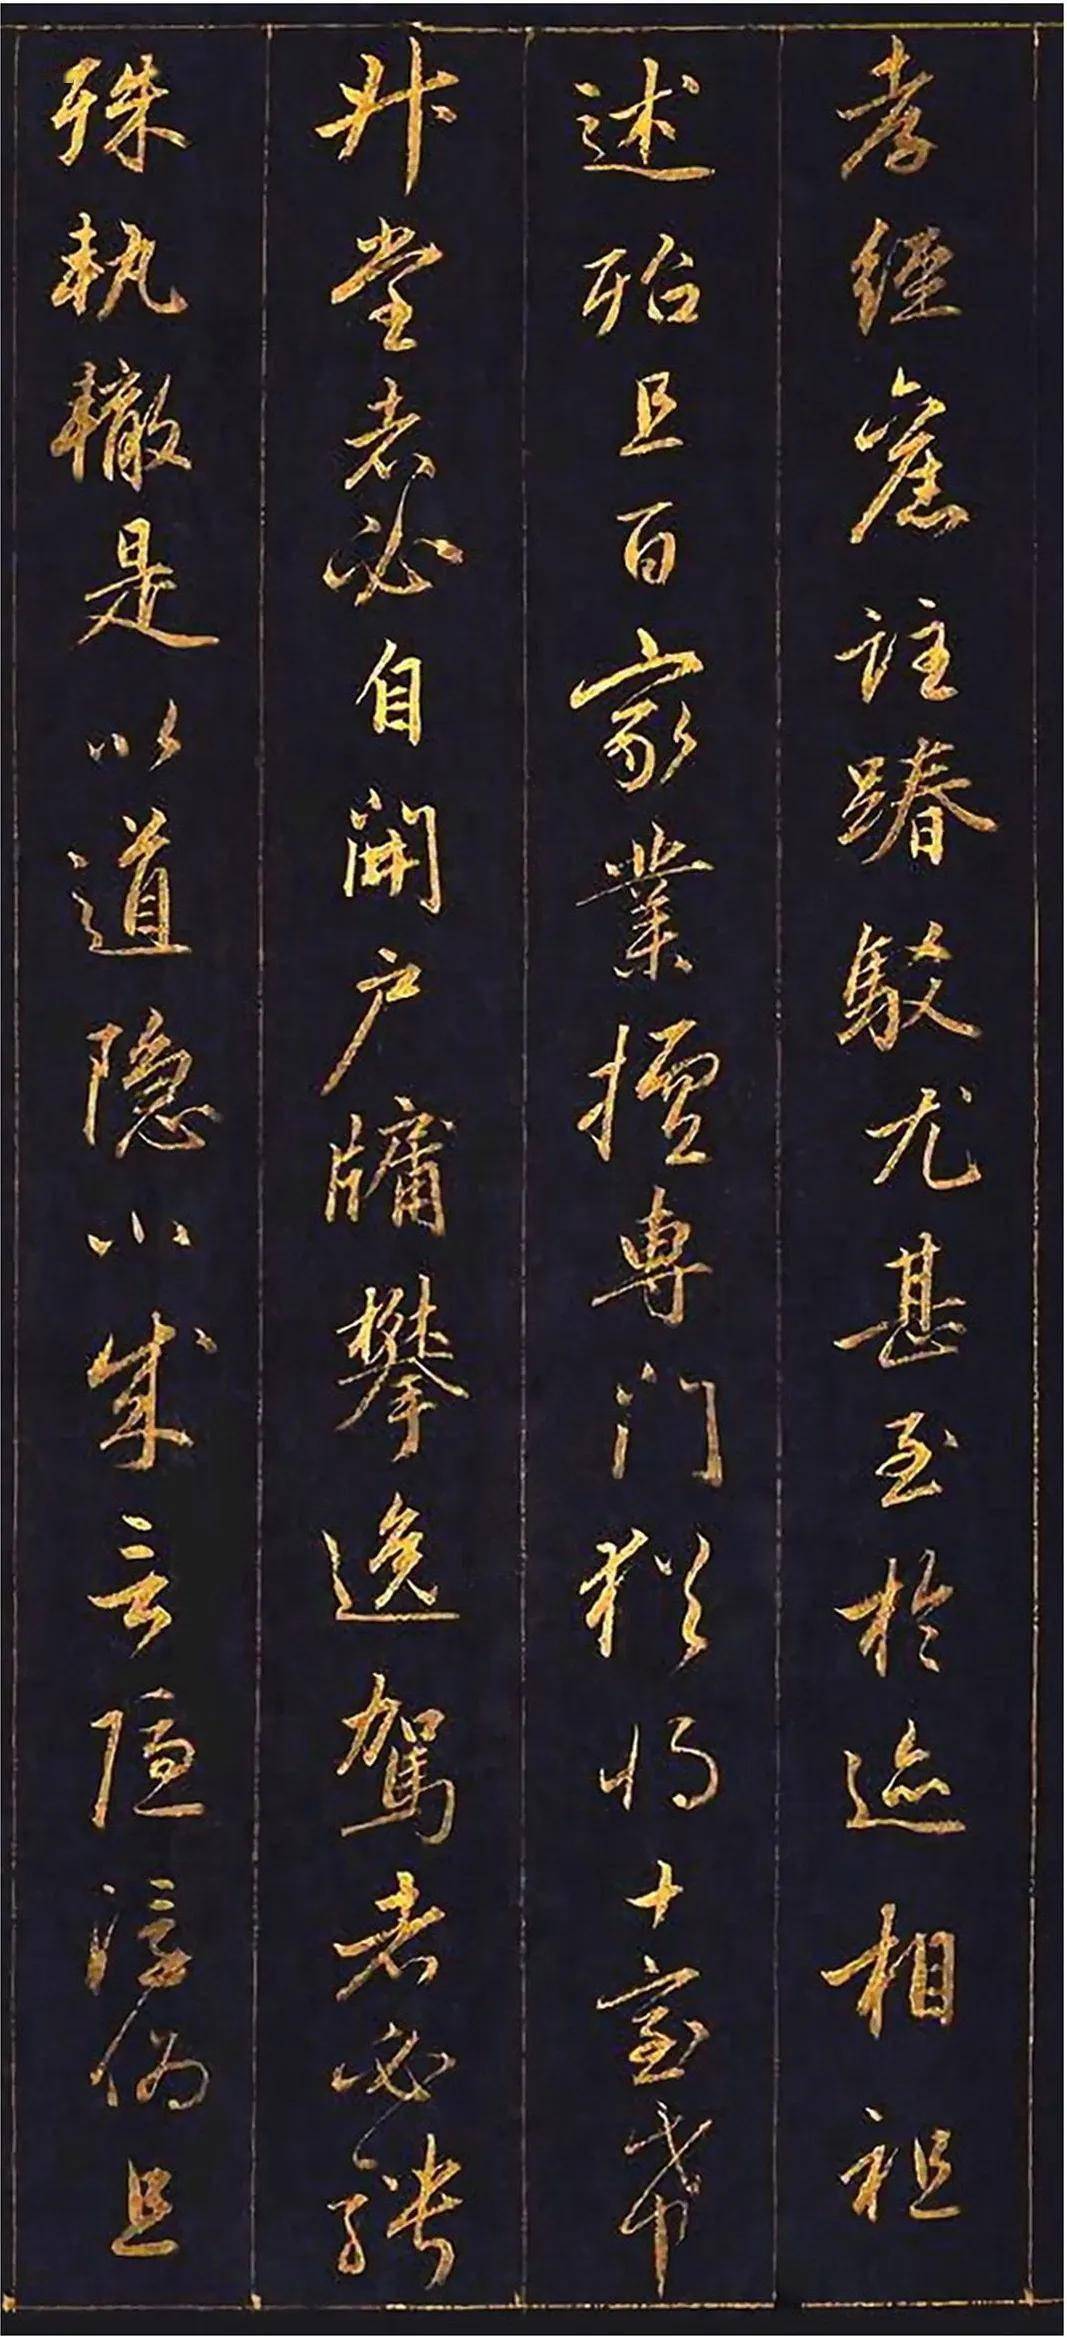 孝經舊註踳駮尤甚至於迹相祖
述殆且百家業擅專門猶將十室希
升堂者必自開戶牖攀逸駕者必騁
殊軌轍是以道隱小成言隱浮偽且